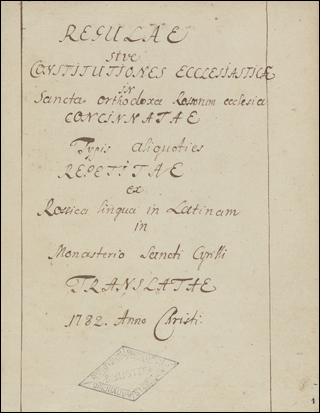 REGULAE
sive
CONSTITUTIONES ECCLESIASTICÆ
IN
Sancta Orthodoxa Rossorum ecclesia
CONCINNATAE
Typis aliquoties
REPETITAE
ex
Rossica lingua in Latinam
in
Monasterio Sancti Cyrilli
TRANSLATAE
1782. Anno Christi.
1